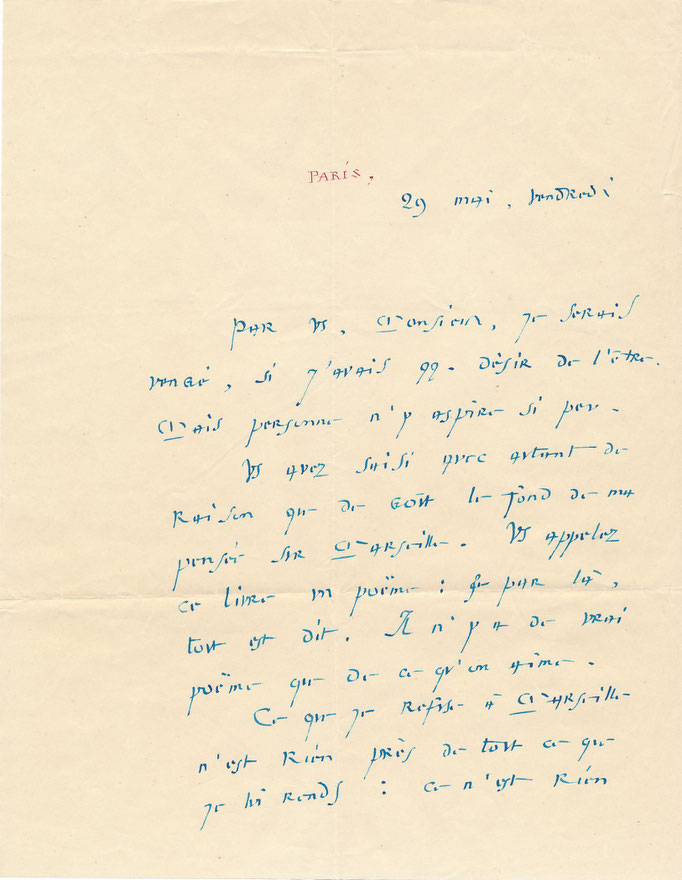 PARIS,
29 mai, vendredi
Par vs, Monsieur, je serais
vengé, si j'avais qq. désir de l'être.
Mais personne n'y aspire si peu.
Vs avez saisi avec autant de
raison que de goût le fond de ma
pensée sur Marseille. Vs appelez
ce livre un poëme : & par là,
tout est dit. Il n'y a de vrai
poëme que de ce qu'on aime.
Ce que je refuse à Marseille
n'est rien près de tout ce que
je lui rends : ce n'est rien